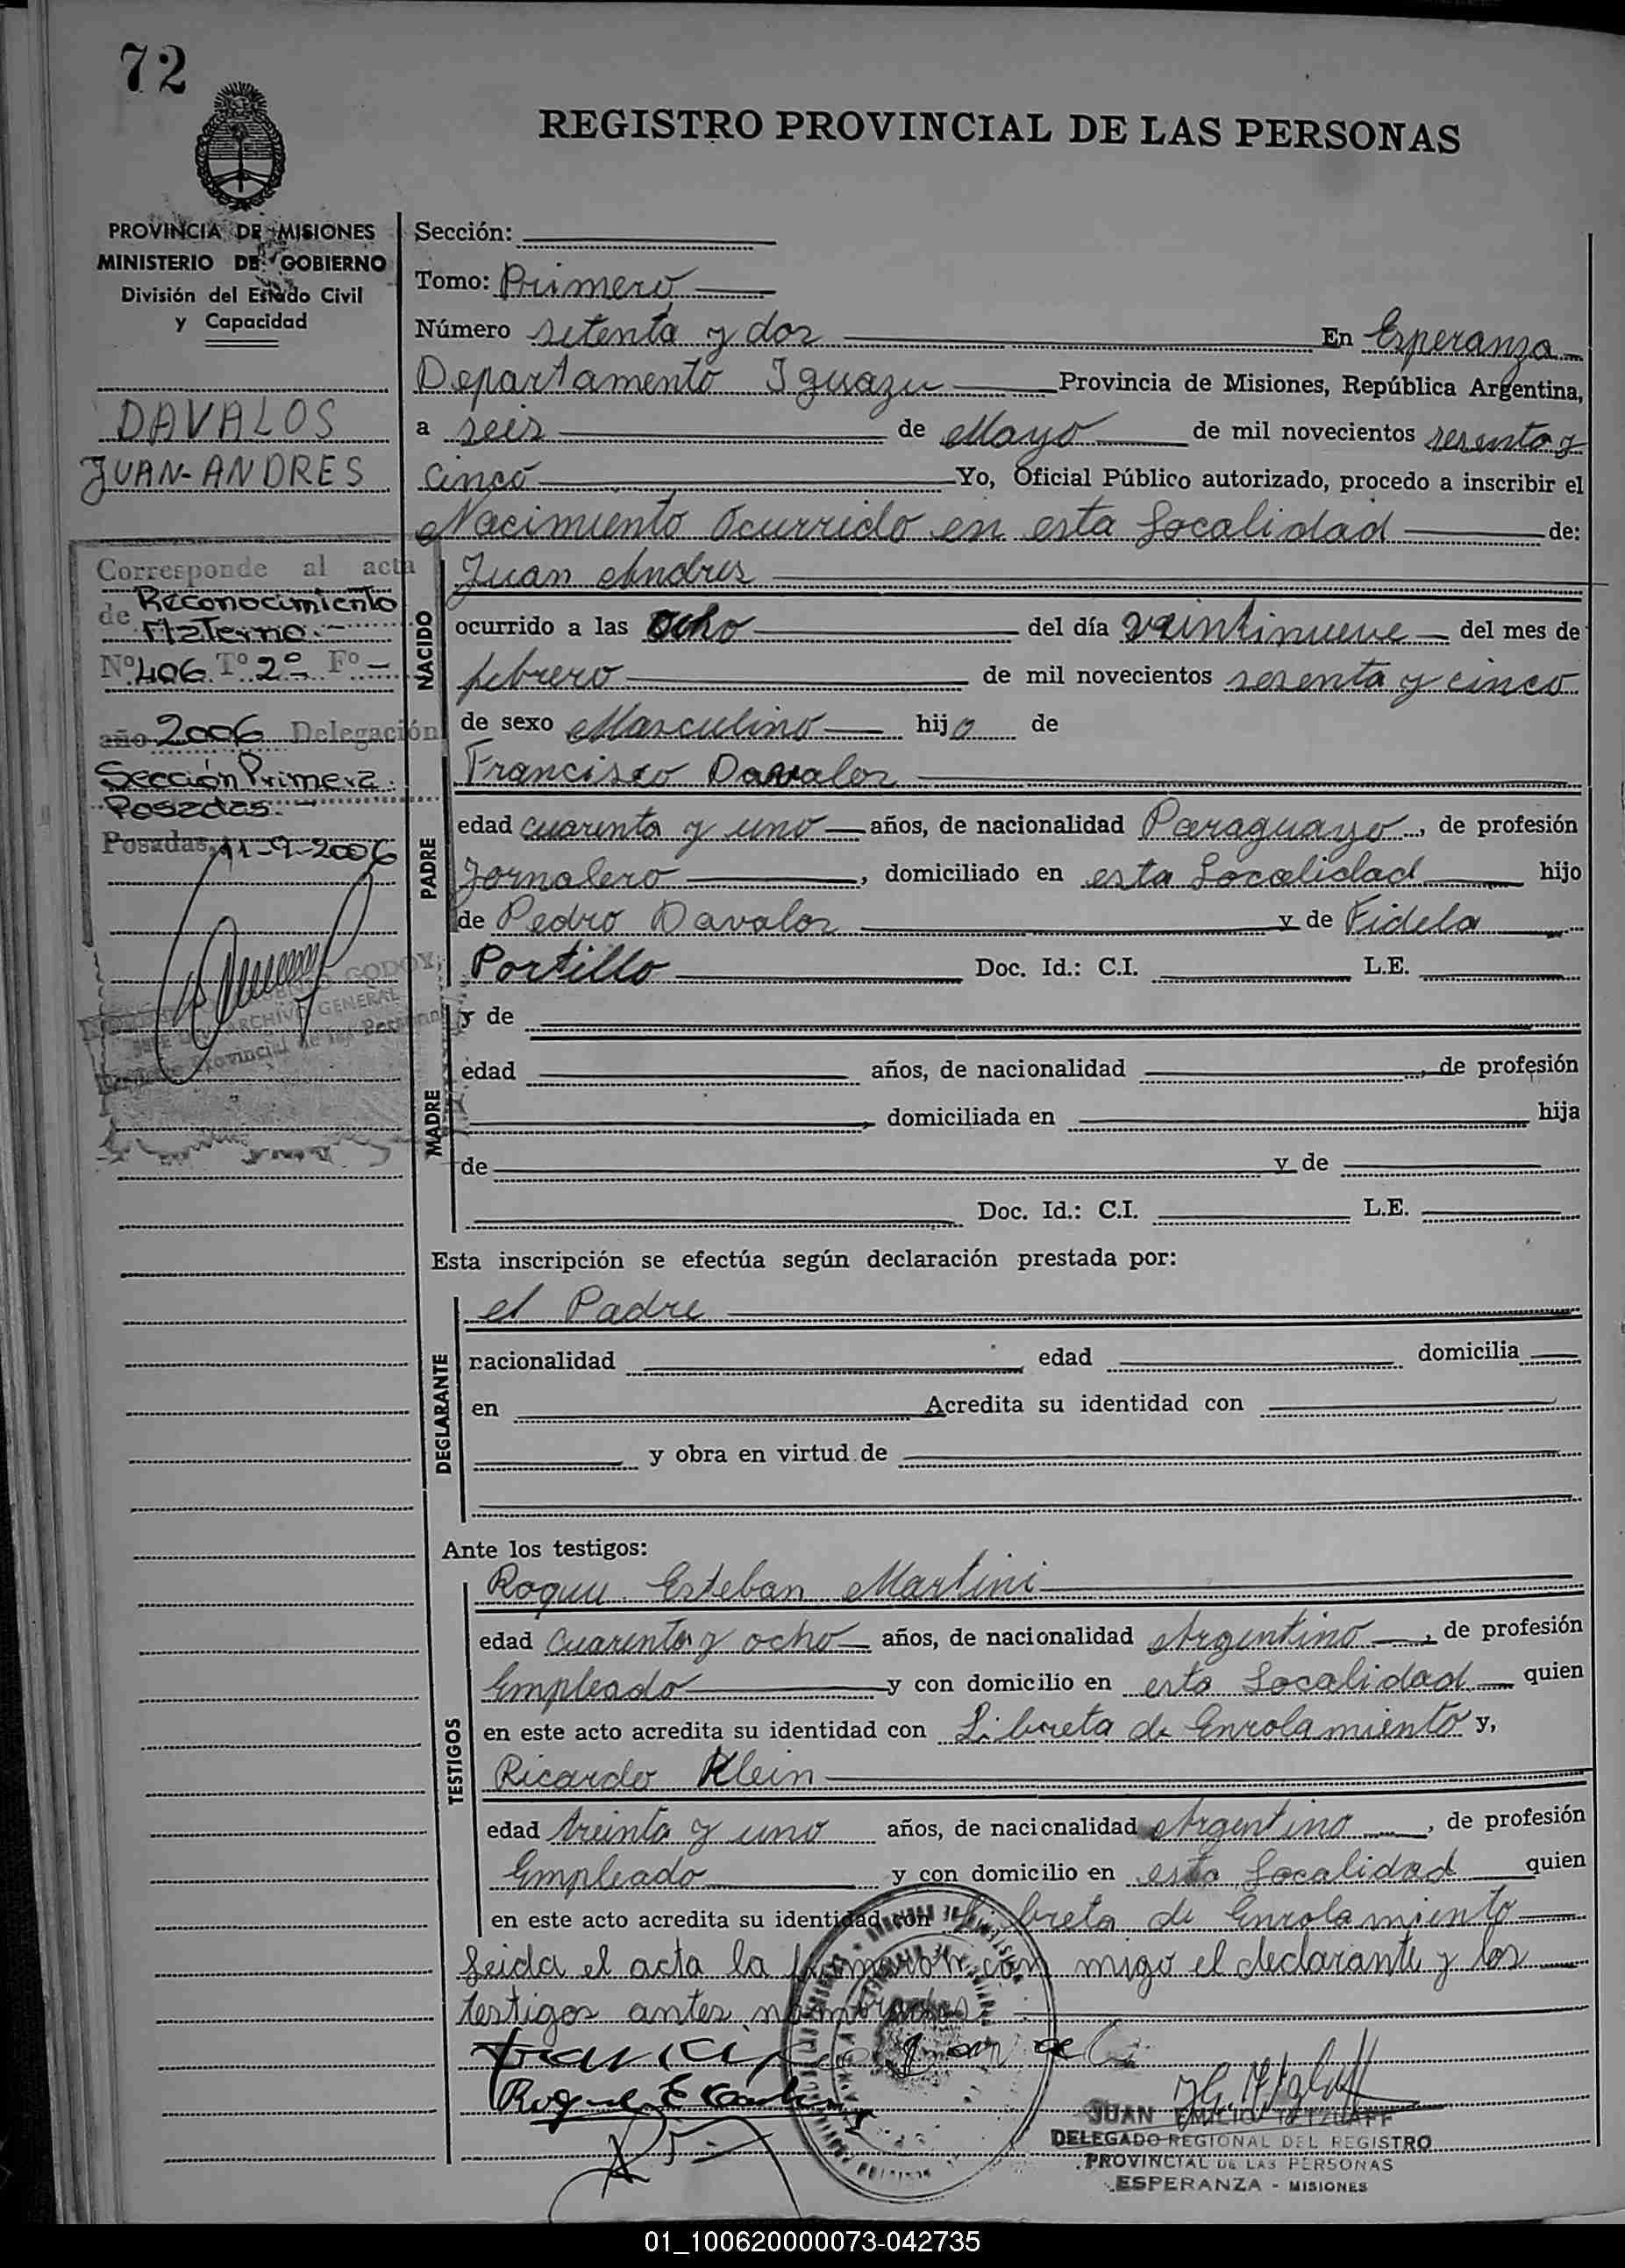 72
REGISTRO PROVINCIAL DE LAS PERSONAS
PROVINCIA DE MISIONES
MINISTERIO DE GOBIERNO
División del Estado Civil
y Capacidad
DAVALOS
JUAN-ANDRES
Corresponde al acta
de Reconocimiento
Materno.-
Nº 406 Tº 2º Fº -
año 2006 Delegación
Sección Primera
Posadas.
Posadas, 11-9-2006
GODOY
JEFE ARCHIVO GENERAL
Provincial de las Personas
Sección:
Tomo: Primero
Número setenta y dos En Esperanza
Departamento Iguazu Provincia de Misiones, República Argentina,
a seis de Mayo de mil novecientos sesenta y
cinco Yo, Oficial Público autorizado, procedo a inscribir el
Nacimiento Ocurrido en esta Localidad de:
NACIDO
Juan Andres
ocurrido a las Ocho del día veintinueve del mes de
febrero de mil novecientos sesenta y cinco
de sexo Masculino hijo de
PADRE
Francisco Davalos
edad cuarenta y uno años, de nacionalidad Paraguayo, de profesión
Jornalero, domiciliado en esta Localidad hijo
de Pedro Davalos y de Fidela
Portillo Doc. Id.: C.I. L.E.
MADRE
y de
edad años, de nacionalidad , de profesión
, domiciliada en hija
de y de
Doc. Id.: C.I. L.E.
Esta inscripción se efectúa según declaración prestada por:
DECLARANTE
el Padre
nacionalidad edad domicilia
en Acredita su identidad con
y obra en virtud de
Ante los testigos:
TESTIGOS
Roque Esteban Martini
edad cuarenta y ocho años, de nacionalidad Argentino, de profesión
Empleado y con domicilio en esta Localidad quien
en este acto acredita su identidad con Libreta de Enrolamiento y,
Ricardo Klein
edad treinta y uno años, de nacionalidad Argentino, de profesión
Empleado y con domicilio en esta Localidad quien
en este acto acredita su identidad con Libreta de Enrolamiento
Leida el acta la firmaron con migo el declarante y los
testigos antes nombrados
JUAN EMILIO TETZLAFF
DELEGADO REGIONAL DEL REGISTRO
PROVINCIAL DE LAS PERSONAS
ESPERANZA - MISIONES
01_100620000073-042735